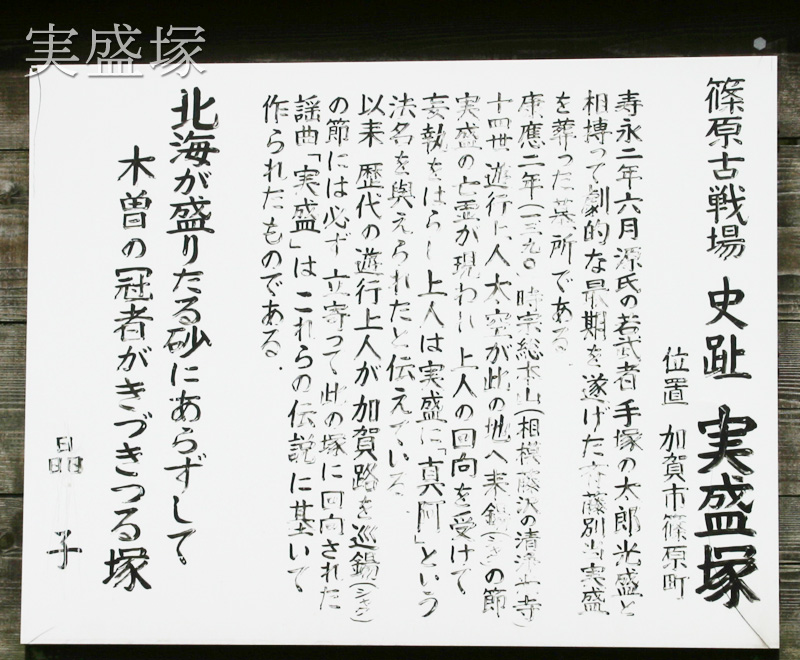 実盛塚
篠原古戦場 史趾 実盛塚
位置 加賀市篠原町
寿永二年六月源氏の若武者手塚の太郎光盛と
相搏って劇的な最期を遂げた斉藤別当実盛
を葬った墓所である.
康應二年(一三九〇、時宗総本山(相模藤沢の清浄光寺)
十四世遊行上人太空が此の地へ来錫(シャク)の節
実盛の亡霊が現われ上人の回向を受けて
妄執をはらし上人は実盛に「真阿」という
法名を與えられたと伝えている.
以来 歴代の遊行上人が加賀路を巡錫(シャク)
の節には必ず立寄って此の塚に回向された
謡曲「実盛」はこれらの伝説に基いて
作られたものである.
北海が盛りたる砂にあらずして
木曽の冠者がきづきつる塚
晶子